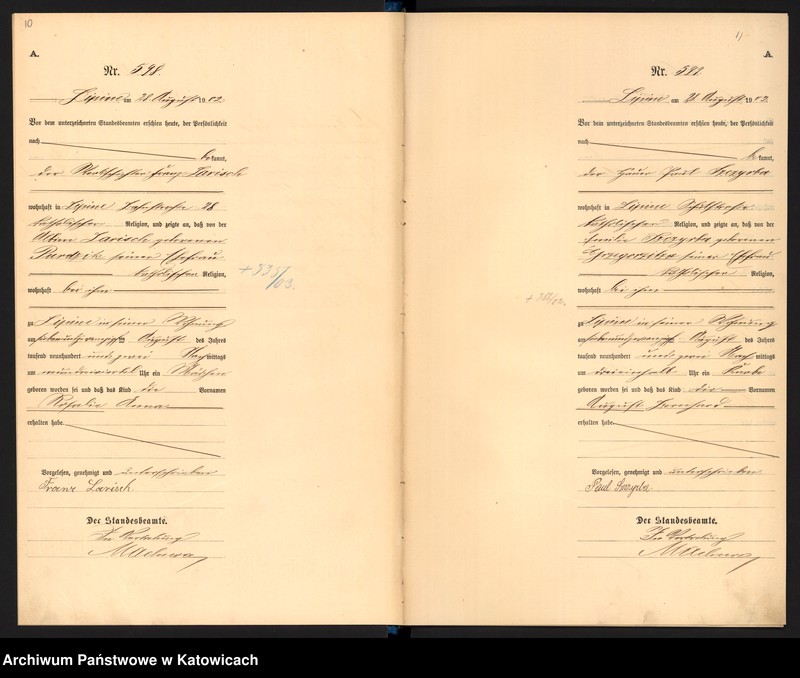 10
A.
Nr. 598.
Lipine am 28. August 1902.
Vor dem unterzeichneten Standesbeamten erschien heute, der Persönlichkeit
nach
bekannt,
der Franz Larisch
wohnhaft in Lipine 28
katholischer Religion, und zeigte an, daß von der
Larisch geborenen
seiner Ehefrau
katholischer Religion,
wohnhaft bei ihm
zu Lipine in seiner Wohnung
am siebenundzwanzigsten August des Jahres
tausend neunhundert und zwei Nachmittags
um Uhr ein Mädchen
geboren worden sei und daß das Kind die Vornamen
Rosalie Anna
erhalten habe.
Vorgelesen, genehmigt und unterschrieben
Franz Larisch.
Der Standesbeamte.
In Vertretung
11
A.
Nr.
Lipine am 28. August 1902.
Vor dem unterzeichneten Standesbeamten erschien heute, der Persönlichkeit
nach
bekannt,
der Häuer Paul Szczyrba
wohnhaft in Lipine Schulstraße
katholischer Religion, und zeigte an, daß von der
Szczyrba geborenen
seiner Ehefrau
katholischer Religion,
wohnhaft bei ihm
zu Lipine in seiner Wohnung
am siebenundzwanzigsten August des Jahres
tausend neunhundert und zwei Nachmittags
um Uhr ein Knabe
geboren worden sei und daß das Kind die Vornamen
August Bernhard
erhalten habe.
Vorgelesen, genehmigt und unterschrieben
Paul
Der Standesbeamte.
In Vertretung
Archiwum Państwowe w Katowicach